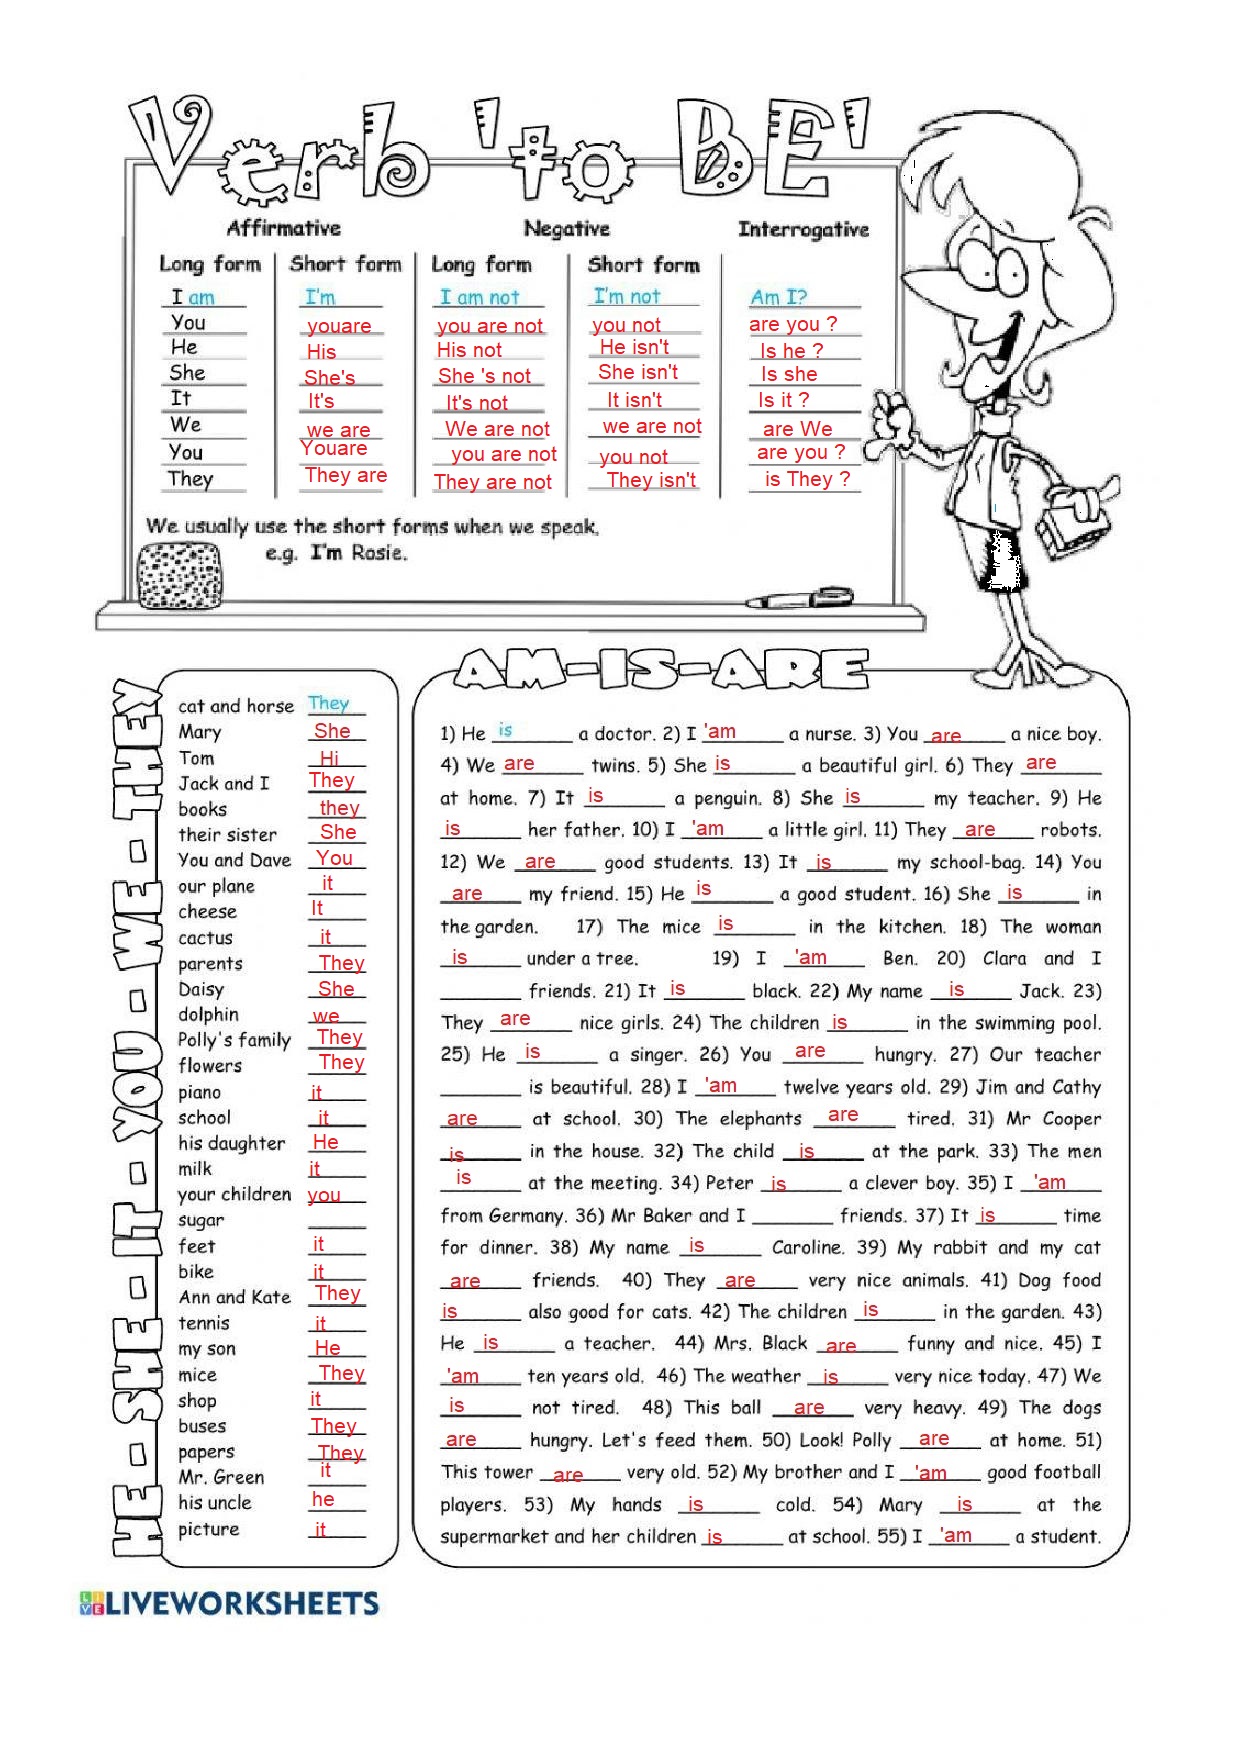 Verb 'to BE'
Affirmative Negative Interrogative
Long form Short form Long form Short form
I am I'm I am not I'm not Am I?
You youare you are not you not are you ?
He His His not He isn't Is he ?
She She's She 's not She isn't Is she
It It's It's not It isn't Is it ?
We we are We are not we are not are We
You Youare you are not you not are you ?
They They are They are not They isn't is They ?
We usually use the short forms when we speak.
e.g. I'm Rosie.
HE - SHE - IT - YOU - WE - THEY
cat and horse They
Mary She
Tom Hi
Jack and I They
books they
their sister She
You and Dave You
our plane it
cheese It
cactus it
parents They
Daisy She
dolphin we
Polly's family They
flowers They
piano it
school it
his daughter He
milk it
your children you
sugar
feet it
bike it
Ann and Kate They
tennis it
my son He
mice They
shop it
buses They
papers They
Mr. Green it
his uncle he
picture it
AM-IS-ARE
1) He is a doctor. 2) I 'am a nurse. 3) You are a nice boy.
4) We are twins. 5) She is a beautiful girl. 6) They are
at home. 7) It is a penguin. 8) She is my teacher. 9) He
is her father. 10) I 'am a little girl. 11) They are robots.
12) We are good students. 13) It is my school-bag. 14) You
are my friend. 15) He is a good student. 16) She is in
the garden. 17) The mice is in the kitchen. 18) The woman
is under a tree. 19) I 'am Ben. 20) Clara and I
________ friends. 21) It is black. 22) My name is Jack. 23)
They are nice girls. 24) The children is in the swimming pool.
25) He is a singer. 26) You are hungry. 27) Our teacher
________ is beautiful. 28) I 'am twelve years old. 29) Jim and Cathy
are at school. 30) The elephants are tired. 31) Mr Cooper
is in the house. 32) The child is at the park. 33) The men
is at the meeting. 34) Peter is a clever boy. 35) I 'am
from Germany. 36) Mr Baker and I ________ friends. 37) It is time
for dinner. 38) My name is Caroline. 39) My rabbit and my cat
are friends. 40) They are very nice animals. 41) Dog food
is also good for cats. 42) The children is in the garden. 43)
He is a teacher. 44) Mrs. Black are funny and nice. 45) I
'am ten years old. 46) The weather is very nice today. 47) We
is not tired. 48) This ball are very heavy. 49) The dogs
are hungry. Let's feed them. 50) Look! Polly are at home. 51)
This tower are very old. 52) My brother and I 'am good football
players. 53) My hands is cold. 54) Mary is at the
supermarket and her children is at school. 55) I 'am a student.
LIVE LIVEWORKSHEETS